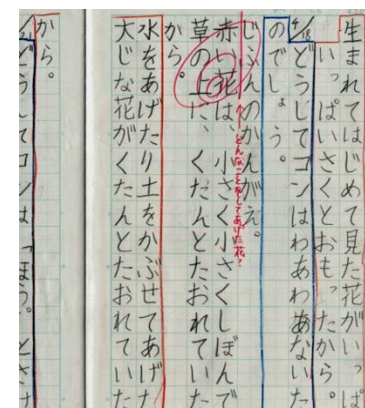 生まれてはじめて見た花がいっぱ
いっぱいさくとおもったから。
4/18 どうしてコンはわあわあないた
のでしょう。
じぶんのかんがえ。
どんなことをしてあげた花?
赤い花は、小さく小さくしぼんで
草の上に、くたんとたおれていた
から。
水をあげたり土をかぶせてあげた
大じな花がくたんとたおれていた
から。
どうしてコンは「ほう。とさ